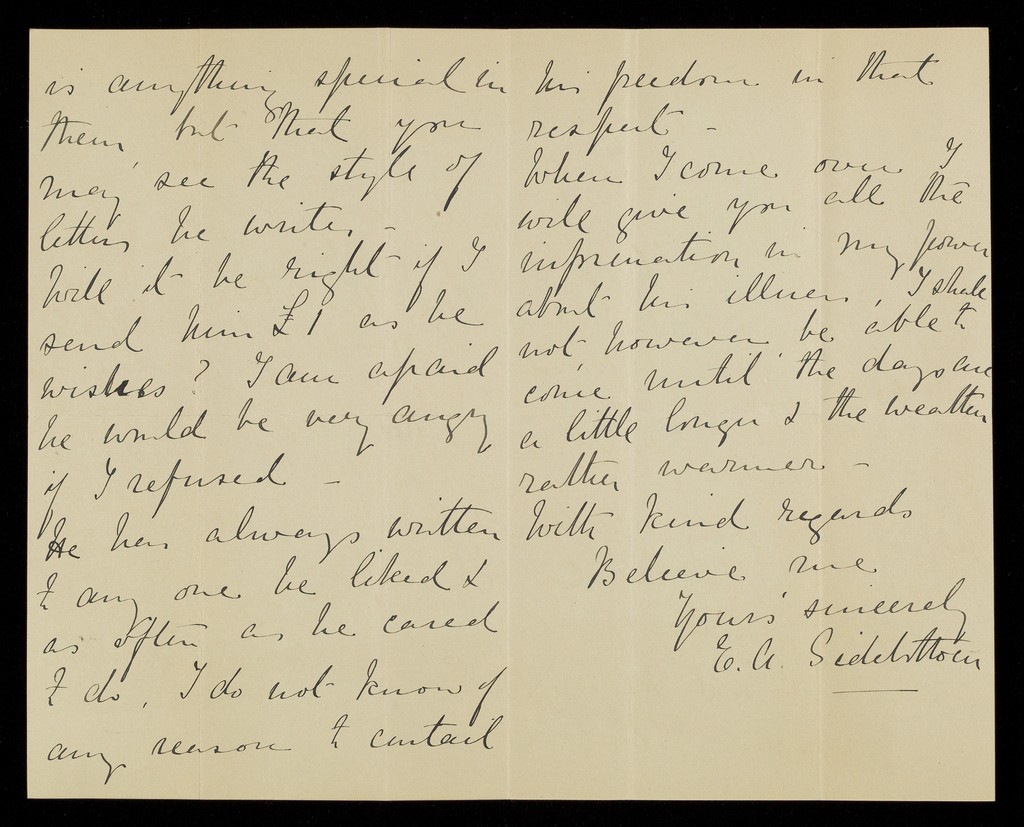 is anything special in
them, but that you
may see the style of
letters he writes -
Will it be right if I
send him £1 as he
wishes? I am afraid
he would be very angry
if I refused -
He has always written
to any one he liked &
as often as he cared
to do, I do not know of
any reason to curtail
his freedom in that
respect -
When I come over I
will give you all the
information in my power
about his illness, I shall
not, however, be able to
come until the days are
a little longer & the weather
rather warmer -
With kind regards
Believe me
Yours sincerely
E. A. Sidebottom